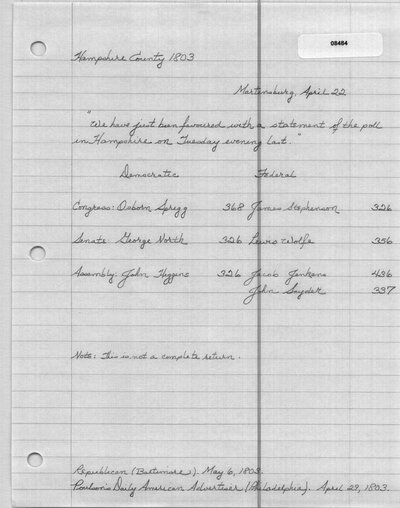 08484
Hampshire County 1803
Martinsburg, April 22
"We have just been favoured with a statement of the poll
in Hampshire on Tuesday evening last."
Democratic Federal
Congress: Osborn Sprigg 368 James Stephenson 326
Senate George North 326 Lewis Wolfe 356
Assembly: John Higgins 326 Jacob Jenkens 436
John Snyder 337
Note: This is not a complete return.
Republican (Baltimore). May 6, 1803.
Poulson's Daily American Advertiser (Philadelphia). April 29, 1803.